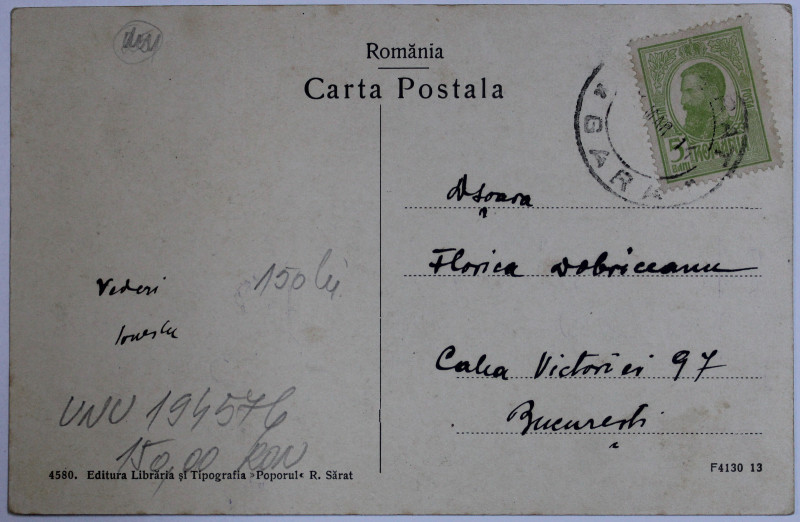 România
Carta Postala
5 BANI ROMÂNIA
GARA
Dșoara
Florica Dobriceanu
Calea Victoriei 97
București
Vederi
Ionescu
150 lei
UNU 194576
150,00 RON
4580. Editura Librăria și Tipografia »Poporul« R. Sărat
F4130 13